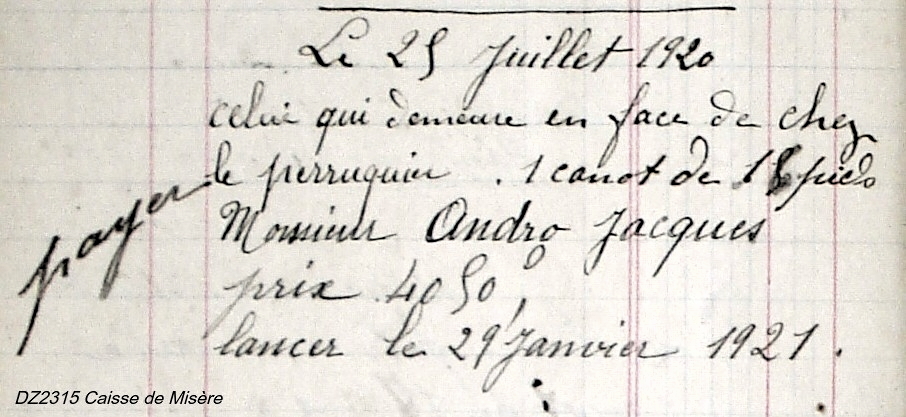 Le 25 Juillet 1920
celui qui demeure en face de chez
le perruquier . 1 canot de pieds
Monsieur Andro Jacques
payer
prix 4050
lancer le 29 Janvier 1921 .
DZ2315 Caisse de Misère